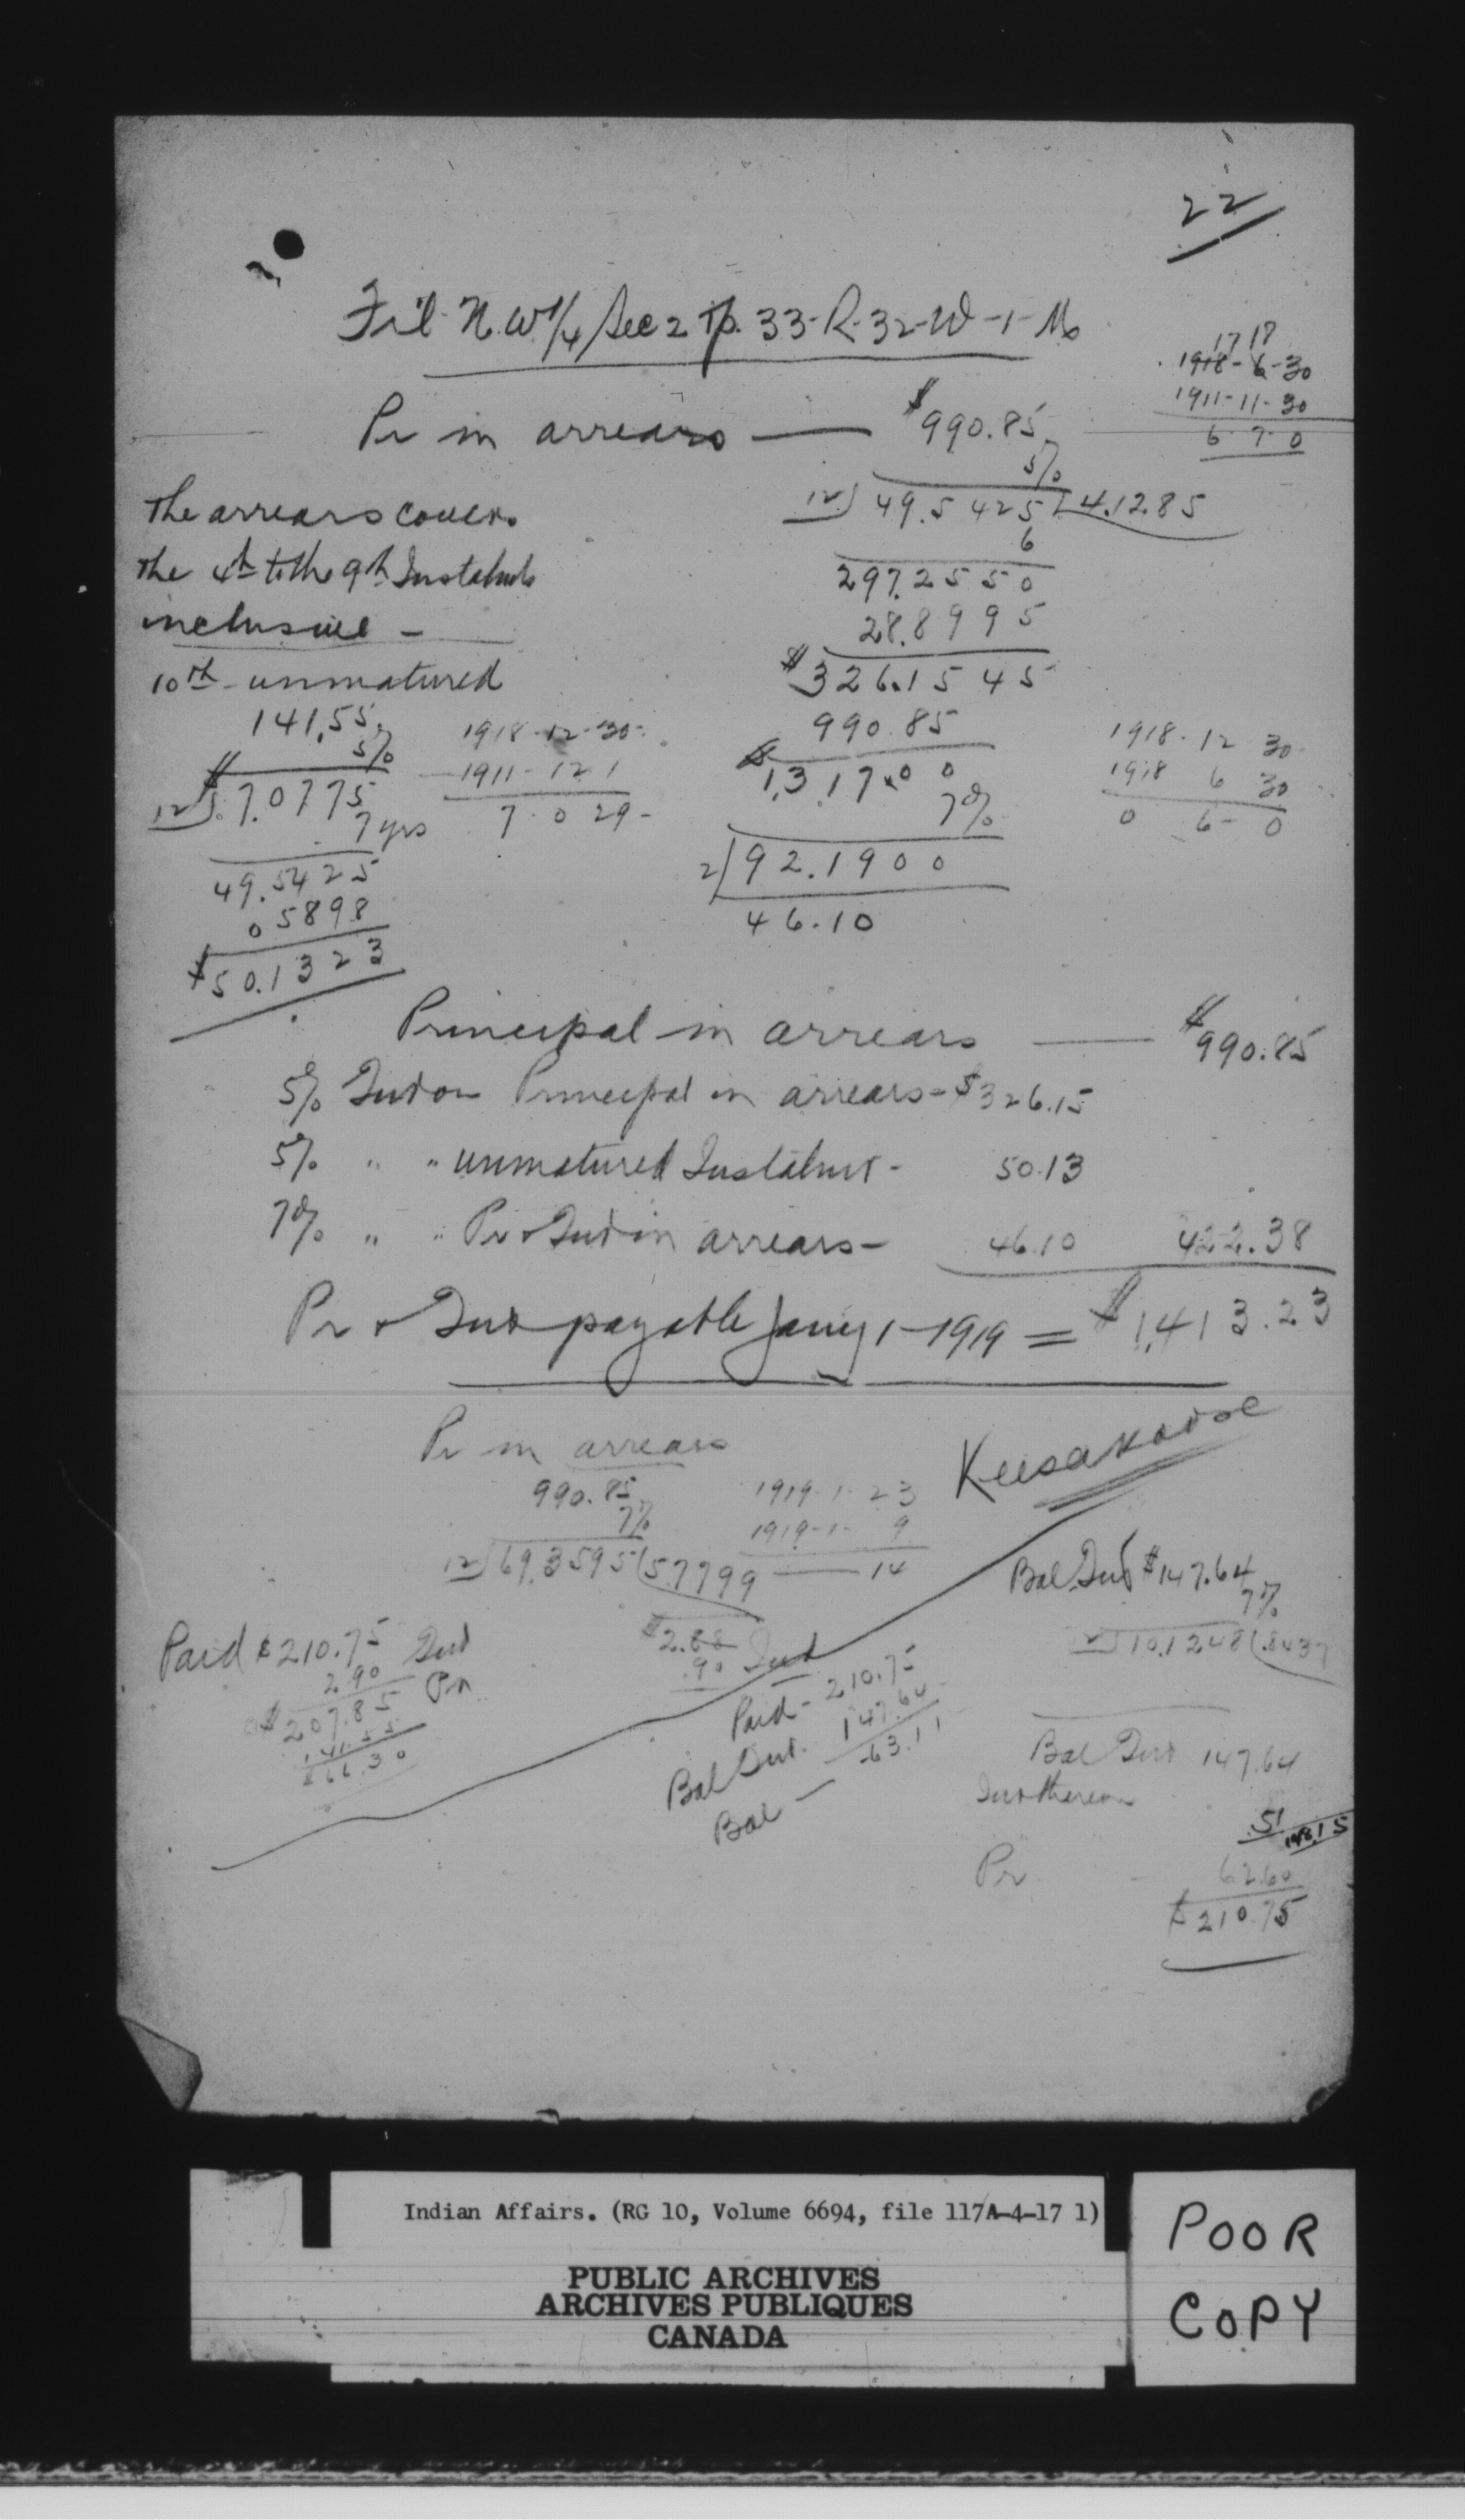 22
Frl. N.W 1/4 Sec 2 Tp. 33-R-32-W-1-M
17 18
1918-6-30
1911-11-30
6 7 0
Pr in arrears — $990.85
5%
12) 49.5425 (4.1285
6
297.2550
28.8995
$326.1545
990.85
$1,317.00
7%
2) 92.1900
46.10
The arrears cover
the 4th to the 9th Instalmts
inclusive -
10th - unmatured
141.55
5%
12) $7.0775
7 yrs
49.5425
.05898
$50.1323
1918-12-30
1911-12 1
7 0 29-
1918-12 30
1918 6 30
0 6- 0
Principal in arrears — $990.85
5% Int on Principal in arrears - $326.15
5% " " unmatured Instalmt - 50.13
7% " " Pr & Int in arrears - 46.10 422.38
Pr & Int payable Jany 1-1919 = $1,413.23
Keesakoose
Pr in arrears
990.85
7%
12) 69.3595 (5.7799
1919-1-23
1919-1- 9
14
$2.88
.90 Int
Paid $210.75 Int
2.90
$207.85 Pr
141.55
$66.30
Paid - 210.75
Bal Int. 147.64
Bal — 63.11
Bal. Int $147.64
7%
12) 10.1248 (.8437
Bal Int 147.64
Int thereon .51
148.15
Pr 62.60
$210.75
Indian Affairs. (RG 10, Volume 6694, file 117A-4-17 1)
PUBLIC ARCHIVES
ARCHIVES PUBLIQUES
CANADA
POOR
COPY